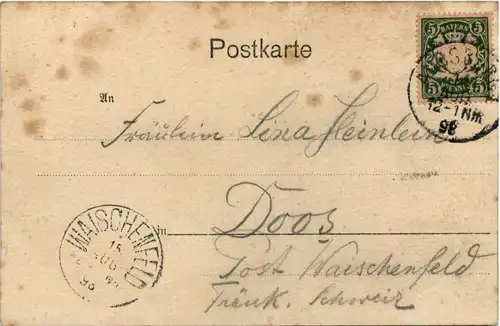 Postkarte
BAYERN
5 5
An
Fräulein Lina Heinlein
12-1 NM
98
in
Doos
Post Waischenfeld
Fränk. Schweiz
WAISCHENFELD
15
AUG
98